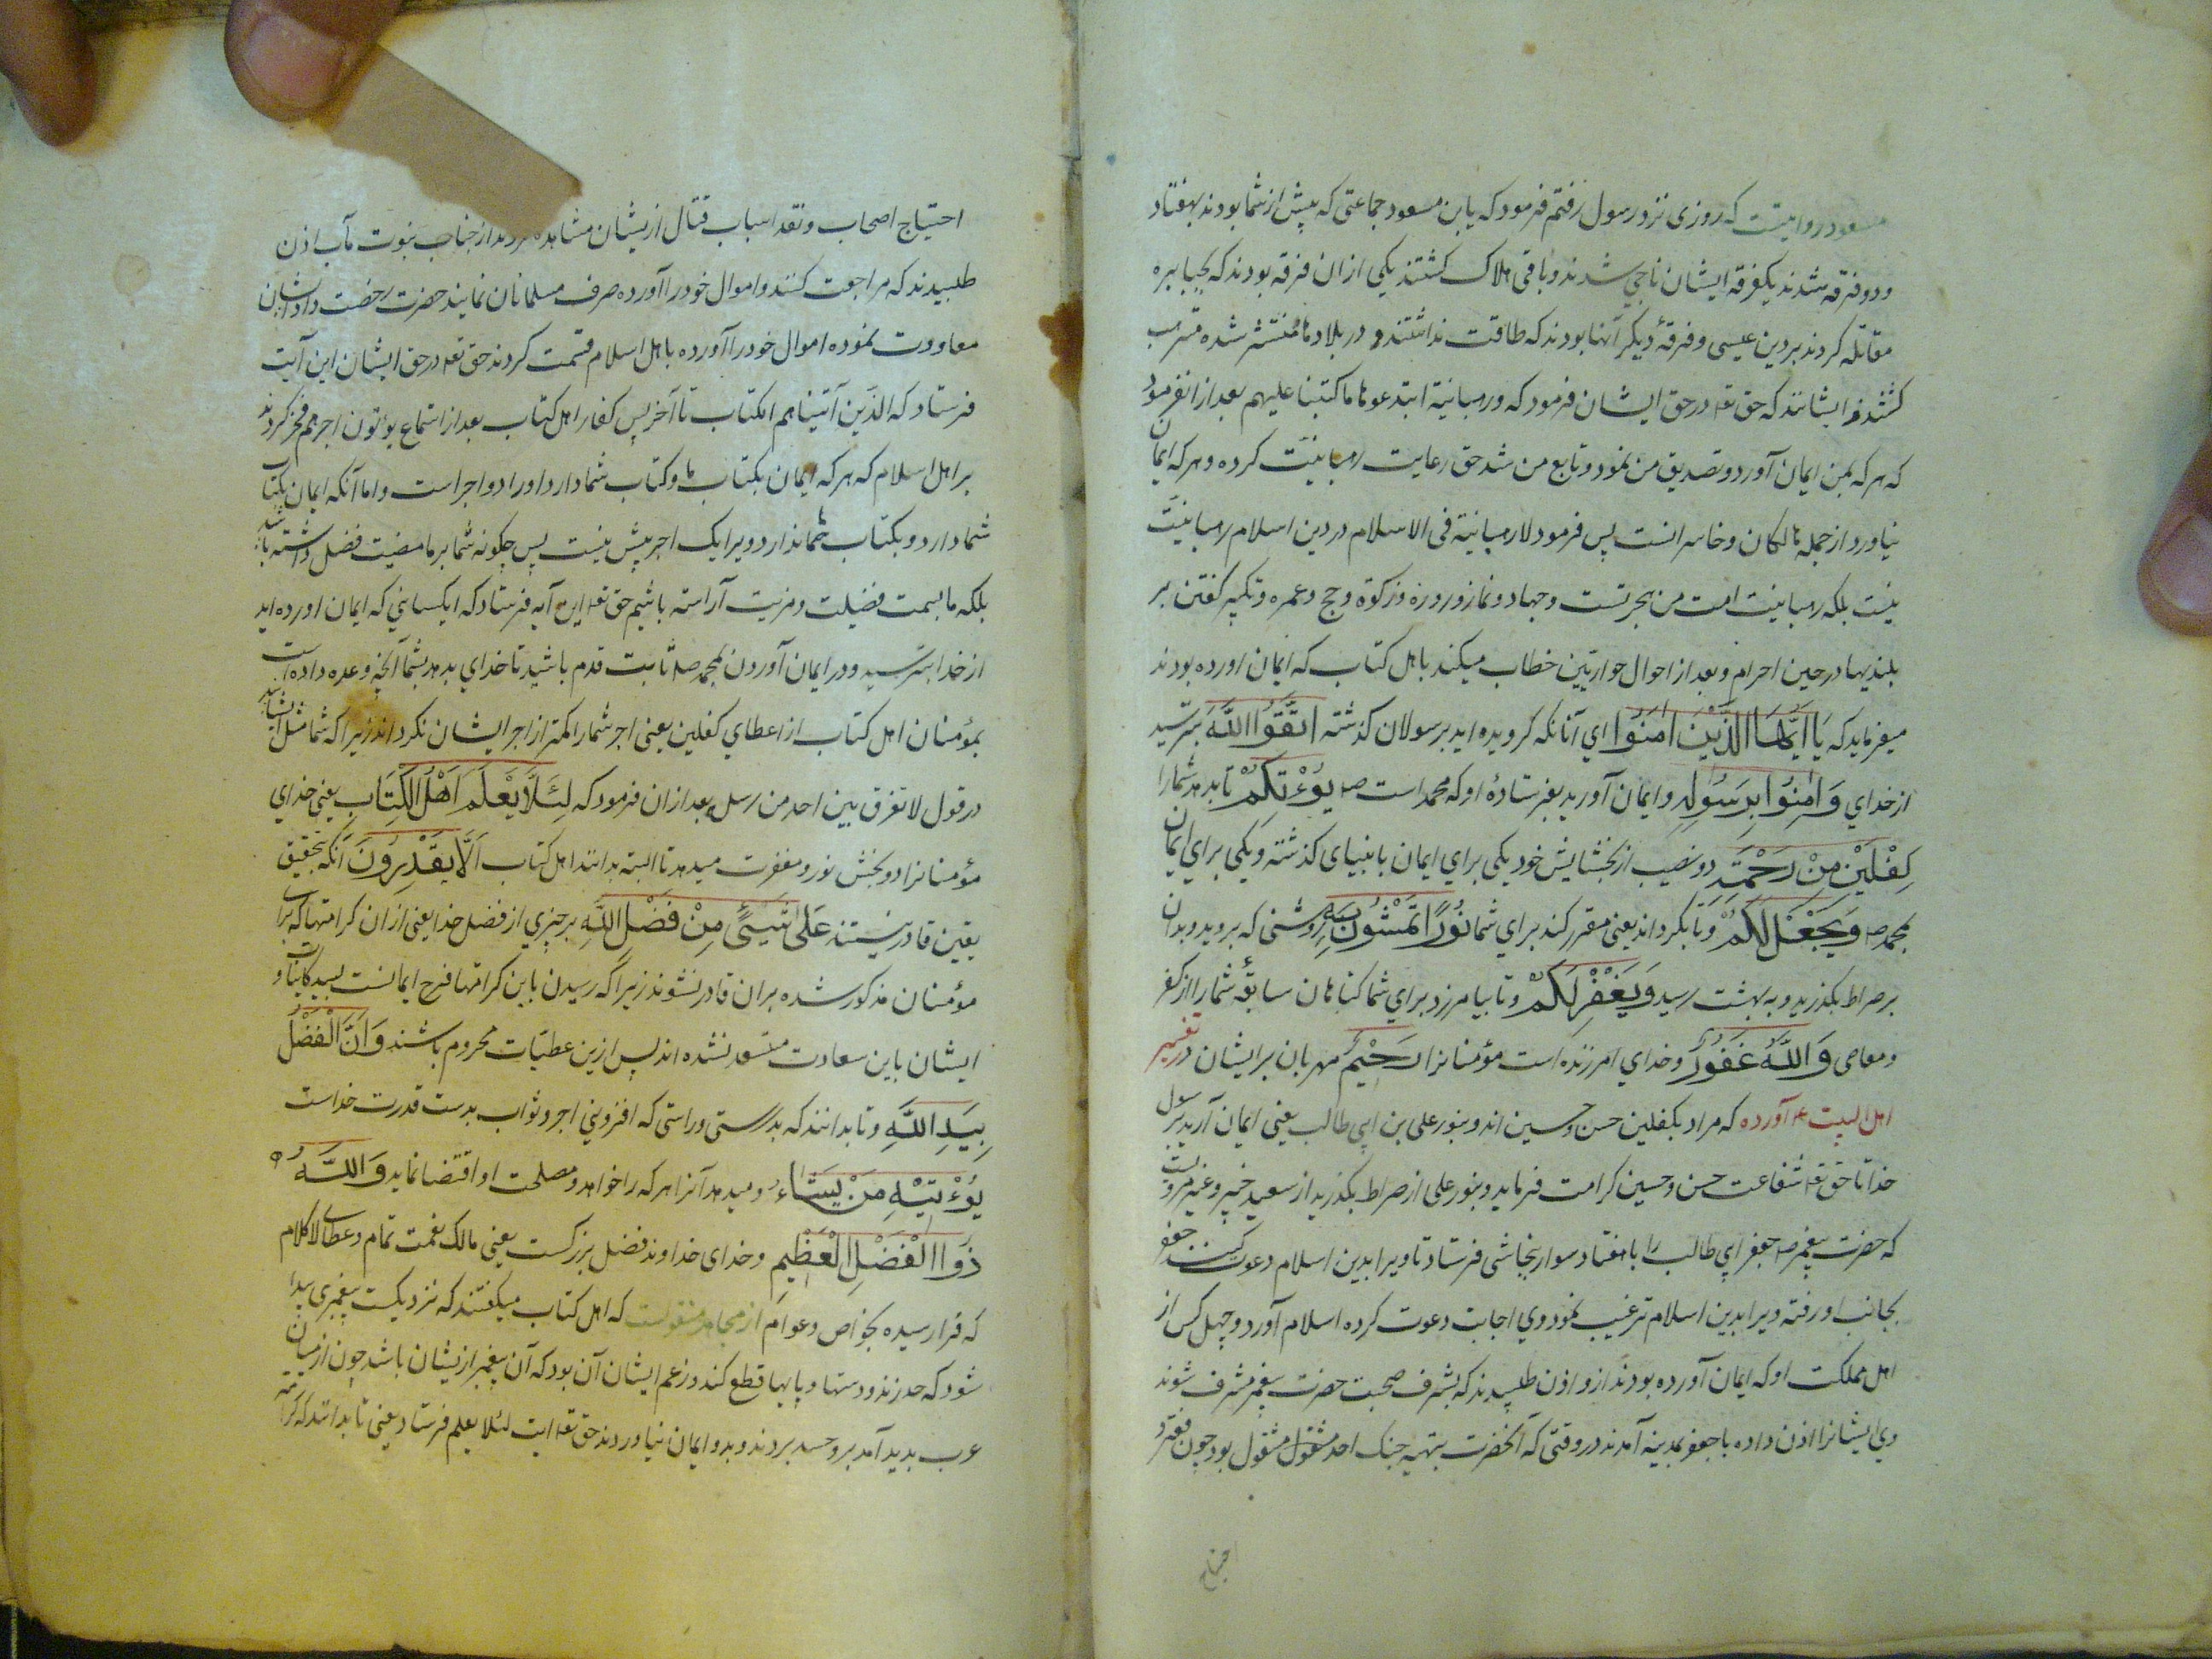 مسعود روایتست که روزی نزد رسول رفتم فرمود که یابن مسعود جماعتی که پیش از شما بودند بهفتاد
و دو فرقه شدند یکفرقه ایشان ناجی شدند و باقی هلاک کشتند یکی ازان فرقه بودند که بجبابره
مقاتله کردند بر دین عیسی و فرقهٔ دیکر آنها بودند که طاقت نداشتند و در بلادها منتشر شده مترهب
کشتند و ایشانند که حق تع‍ در حق ایشان فرمود که و رهبانیة ابتدعوها ما کتبنا علیهم بعد ازان فرمود
که هر که بمن ایمان آورد و تصدیق من نمود و تابع من شد حق رعایت رهبانیت کرده و هر که ایمان
نیاورد از جمله هالکان و خاسرانست پس فرمود لا رهبانیة فی الاسلام در دین اسلام رهبانیت
نیست بلکه رهبانیت امت من هجرتست و جهاد و نماز و روزه و زکوة و حج و عمره و تکبیر کفتن بر
بلندیها در حین احرام و بعد از احوال حواریین خطاب میکند باهل کتاب که ایمان اورده بودند
میفرماید که یَا اَیُّهَا الَّذِیْنَ اٰمَنُوا ای آنانکه کرویده اید برسولان کذشته اتَّقُوا اللّٰهَ بترسید
از خدای وَ اٰمِنُوا بِرَسُولِهِ و ایمان آورید بفرستادهٔ او که محمد است ص یُؤْتِکُمْ تا بدهد شما را
کِفْلَیْنِ مِنْ رَحْمَتِهِ دو نصیب از بخشایش خود یکی برای ایمان بانبیای کذشته و یکی برای ایمان
بمحمد ص وَ یَجْعَلْ لَکُمْ و تا بکرداند یعنی مقرر کند برای شما نُورًا تَمْشُونَ بِهِ روشنی که بروید و بدان
بر صراط بکذرید و به بهشت رسید وَ یَغْفِرْ لَکُمْ و تا بیامرزد برای شما کناهان سابقهٔ شما را از کفر
و معاصی وَ اللّٰهُ غَفُورٌ و خدای امرزنده است مؤمنانرا رَحِیْمٌ مهربان بر ایشان در تفسیر
اهل البیت ع آورده که مراد بکفلین حسن و حسین اند و بنور علی بن ابی طالب یعنی ایمان آرید برسول
خدا تا حق تع‍ شفاعت حسن و حسین کرامت فرماید و بنور علی از صراط بکذرید از سعید جبیر و غیره مرویست
که حضرت پیغمبر ص جعفر ابی طالب را با هفتاد سوار بنجاشی فرستاد تا ویرا بدین اسلام دعوت کند جعفر
بجانب او رفته ویرا بدین اسلام ترغیب نمود وی اجابت دعوت کرده اسلام آورد و چهل کس از
اهل مملکت او که ایمان آورده بودند ازو اذن طلبیدند که بشرف صحبت حضرت پیغمبر مشرف شوند
وی ایشانرا اذن داده با جعفر بمدینه آمدند در وقتی که آنحضرت بتهیه جنک احد مشغول مشغول بود چون فقر و
احتیاج
احتیاج اصحاب و نقد اسباب قتال ازیشان مشاهده کردند از جناب نبوت مآب اذن
طلبیدند که مراجعت کنند و اموال خود را آورده صرف مسلمانان نمایند حضرت رخصت داد ایشان
معاودت نموده اموال خود را آورده باهل اسلام قسمت کردند حق تع‍ در حق ایشان این آیت
فرستاد که الذین آتیناهم الکتاب تا آخر پس کفار اهل کتاب بعد از استماع یؤتون اجرهم فخر کردند
بر اهل اسلام که هر که ایمان بکتاب ما و کتاب شما دارد او را دو اجر است و اما آنکه ایمان بکتاب
شما دارد و بکتاب ما ندارد ویرا یک اجر پیش نیست پس چکونه شما بر ما مضیت فضل داشته باشید
بلکه ما بسمت فضیلت و مزیت آراسته باشیم حق تع‍ این آیه فرستاد که ایکسانی که ایمان اورده اید
از خدا بترسید و در ایمان آوردن بمحمد ص ثابت قدم باشید تا خدای بدهد بشما آنچه وعده داده است
بمؤمنان اهل کتاب از اعطای کفلین یعنی اجر شما را کمتر از اجر ایشان نکرداند زیرا که شما مثل ایشانید
در قول لا تفرق بین احد من رسله بعد ازان فرمود که لِئَلَّا یَعْلَمَ اَهْلُ الْکِتَابِ یعنی خدای
مؤمنانرا دو بخش نور و مغفرت میدهد تا البته بدانند اهل کتاب اَلَّا یَقْدِرُونَ آنکه بتحقیق
یقین قادر نیستند عَلٰی شَیْئٍ مِنْ فَضْلِ اللّٰهِ بر چیزی از فضل خدا یعنی ازان کرامتها که برای
مؤمنان مذکور شده بران قادر نشوند زیرا که رسیدن باین کرامتها فرع ایمانست بسید کاینات و
ایشان باین سعادت مستعد نشده اند پس ازین عطیّات محروم باشند وَ اَنَّ الْفَضْلَ
بِیَدِ اللّٰهِ و تا بدانند که بدرستی و راستی که افزونی اجر و ثواب بدست قدرت خداست
یُؤْتِیْهِ مَنْ یَشَاءُ و میدهد آنرا هر که را خواهد و مصلحت او اقتضا نماید وَ اللّٰهُ
ذُو الْفَضْلِ الْعَظِیْمِ و خدای خداوند فضل بزرکست یعنی مالک نعمت تمام و عطای لا کلام
که فرا رسیده بخواص و عوام از مجاهد منقولست که اهل کتاب میکفتند که نزدیکست پیغمبری پیدا
شود که حد زند و دستها و پایها قطع کند و زعم ایشان آن بود که آن پیغمبر ازیشان باشد چون از میان
عرب پدید آمد برو حسد بردند و بدو ایمان نیاوردند حق تع‍ ایت لئلا یعلم فرستاد یعنی تا بدانند که